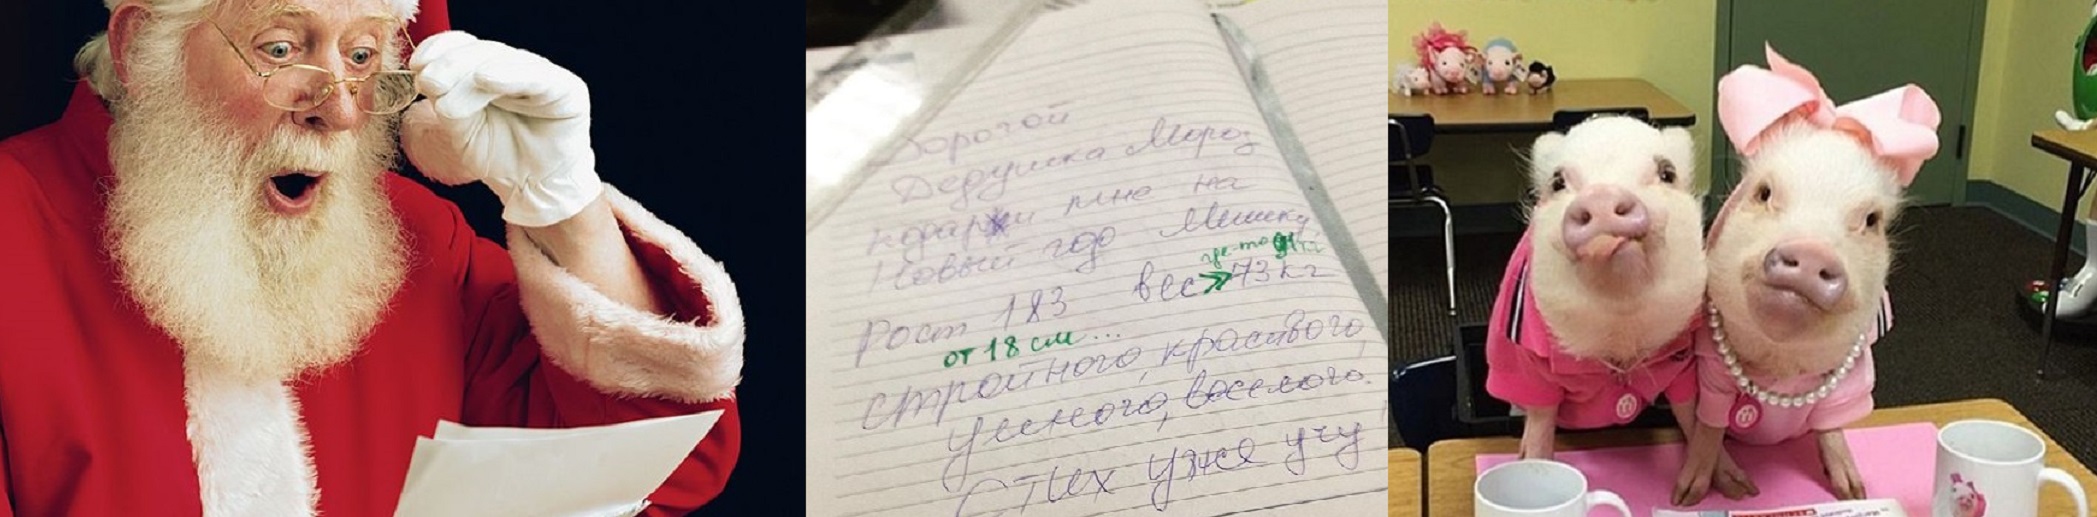 Дорогой
Дедушка Мороз
подари мне на
Новый год Мишку
где-то
Рост 183 вес 73 кг
от 18 см...
стройного, красивого,
умного, веселого.
Стих уже учу